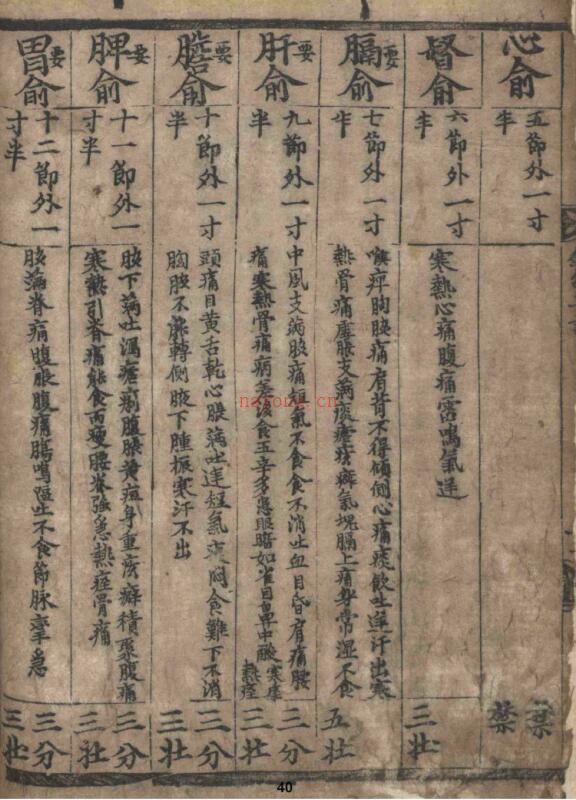 心俞
五節外一寸
半
二禁
禁
督俞
六節外一寸
半
寒熱心痛腹痛雷鳴氣逆
三壯
膈俞
要
七節外一寸
半
喉痺胸脇痛肩背不得傾側心痛痰飲吐逆汗出寒
熱骨痛虛脹支滿痰瘧痎癖氣塊膈上痛身常濕不食
五壯
肝俞
要
九節外一寸
半
中風支滿脇痛短氣不食食不消吐血目昏肩痛腰
痛寒熱骨痛病差後食五辛多患眼暗如雀目鼻中酸
三分
三壯
膽俞
要
十節外一寸
半
頭痛目黃舌乾心脹滿吐逆短氣 悶食難下不消
胸脇不能轉側腋下腫振寒汗不出
三分
三壯
脾俞
要
十一節外一
寸半
脇下滿吐瀉瘧痢腹脹黃疸身重痃癖積聚腹痛
寒熱引脊痛能食而瘦腰脊強急熱痙骨痛
三分
三壯
胃俞
要
十二節外一
寸半
脇滿脊痛腹脹腹痛腸鳴嘔吐不食筋脉攣急
三分
三壯
nayona.cn
40